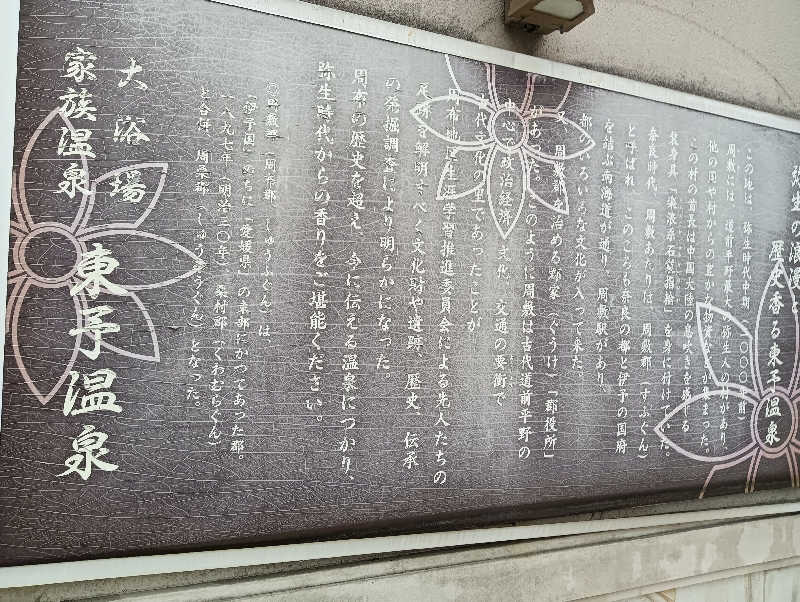 弥生の浪漫と
歴史香る東予温泉
この地は、弥生時代中期
周敷には、道前平野最大の弥生人の村があり、
他の国や村からの豊かな物資が集まった。
この村の首長は中国大陸の息吹きを感じる
装身具
を身に付けていた。
奈良時代、周敷あたりは、周敷郡(すふぐん)
と呼ばれ、このころ奈良の都と伊予の国府
を結ぶ南海道が通り、周敷駅があり、
都のいろいろな文化が入って来た。
又、周敷郡を治める郡家(ぐうけ)「郡役所」
があった。このように周敷は古代道前平野の
中心で政治経済、文化、交通の要衝で
古代文化の里であったことが
周布地区生涯学習推進委員会による先人たちの
足跡を解明すべく文化財や遺跡、歴史、伝承
の発掘調査により明らかになった。
周布の歴史を超え、今に伝える温泉につかり、
弥生時代からの香りをご堪能ください。
◎周敷郡(周布郡)(しゅうふぐん)は
「伊予国」のちに「愛媛県」の東部にかつてあった郡。
一八九七年(明治三〇年)桑村郡(くわむらぐん)
と合併、周桑郡(しゅうそうぐん)となった。
大浴場
家族温泉
東予温泉